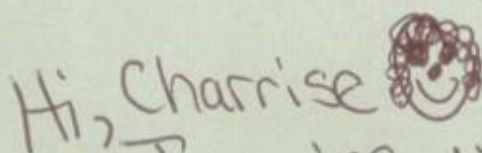 Hi, Charrise